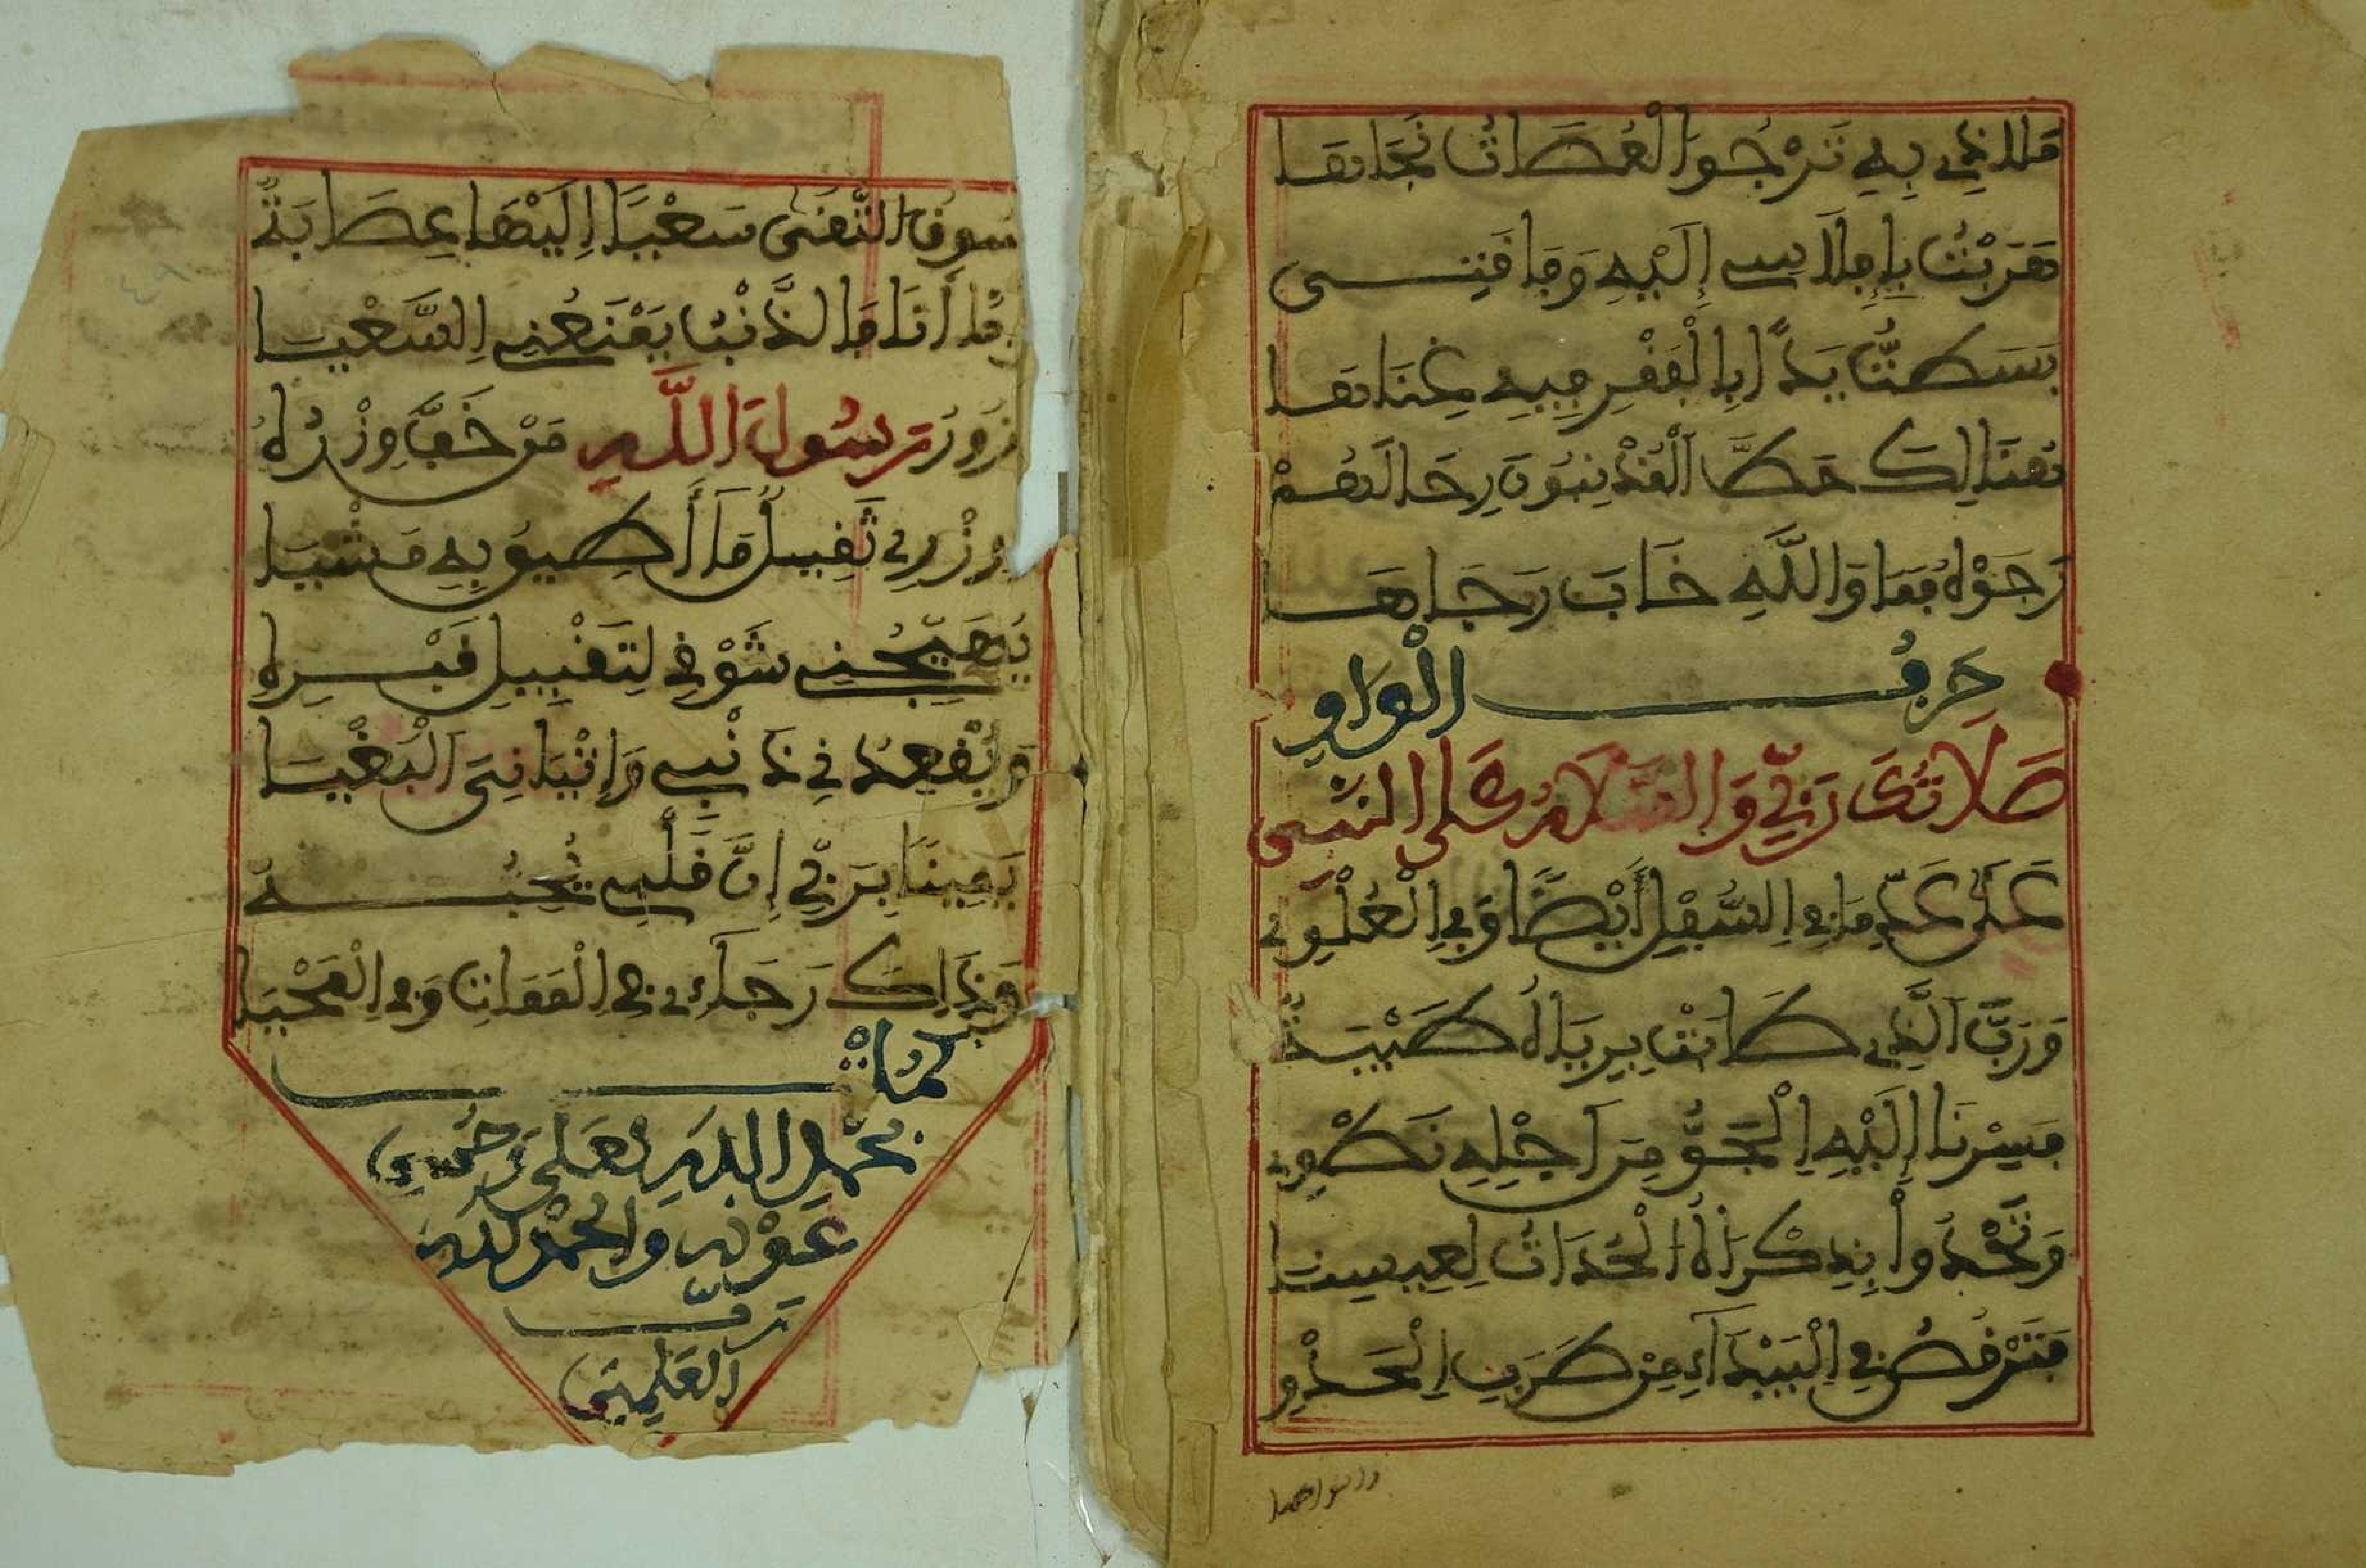 مَلَاذِي بِهِ تَرْجُوا الْعُصَاتُ نَجَاتَهَا
هَرَبْتُ بِإِفْلَاسِي إِلَيْهِ وَفَاقَتِي
بَسَطْتُ يَدًا بِالْفَقْرِ فِيهِ غِنَاتَهَا
هُنَالِكَ حَطَّ الْمُذْنِبُونَ رِحَالَهُمْ
رَجَوْهُ فَمَا وَاللَّهِ خَابَ رَجَاهَا
حَرْفُ الْوَاوِ
صَلَاتُكَ رَبِّي وَالسَّلَامُ عَلَى النَّبِي
عَلَى عَدِّ مَا فِي السُّفْلِ أَيْضًا وَفِي الْعُلْوِي
وَرَبِّ الَّذِي كَانَتْ بِرَيَّاهُ طَيْبَةُ
فَسِرْنَا إِلَيْهِ الْجَوُّ مِنَ اجْلِهِ نَطْوِي
وَنَحْدُوا بِذِكْرَاهُ الْحُدَاتُ لِعِيسِنَا
فَتَرْقُصُ فِي الْبَيْدَآءِ مِنْ طَرَبِ الْحَدْوِ
سَوْقُ التُّقَى سَعْيًا إِلَيْهَا عِصَابَةُ
أَنَا مَا الذَّنْبُ يَمْنَعُنِي السَّعْيَا
زُورُ رَسُولَ اللَّهِ مَنْ خَفَّ وِزْرُهُ
وِزْرِي ثَقِيلُ مَا أُطِيقُ بِهِ مَشْيَا
يُهَيِّجُنِي شَوْقِي لِتَقْبِيلِ قَبْرِهِ
وَيُقْعِدُنِي ذَنْبِي وَإِتْيَانِيَ الْبَغْيَا
يَمِينًا بِرَبِّي إِنَّ قَلْبِي يُحِبُّهُ
وَذَاكَ رَجَآءِي فِي الْمَمَاتِ وَفِي الْمَحْيَا
كَمُلَتْ
بِحَمْدِ اللَّهِ تَعَلَى وَحُسْنِ
عَوْنِهِ وَالْحَمْدُ لِلَّهِ
رَبِّ
الْعَلَمِينَ